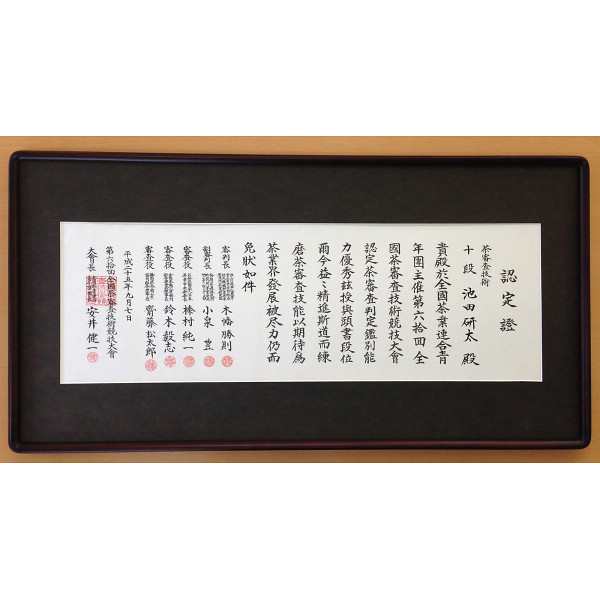 認定證
茶審査技術
十段 池田研太 殿
貴殿於全國茶業連合青
年團主催第六拾回全
國茶審査技術競技大會
認定茶審査判定鑑別能
力優秀玆授與頭書段位
爾今益〻精進斯道而練
磨茶審査技能以期待為
茶業界發展被尽力仍而
免状如件
審判長
木幡勝則
副審判長
小泉豊
審査役
榛村純一
審査役
鈴木毅志
審査役
齋藤松太郎
平成二十五年九月七日
第六拾回全國茶審査技術競技大會
大會長
安井健一